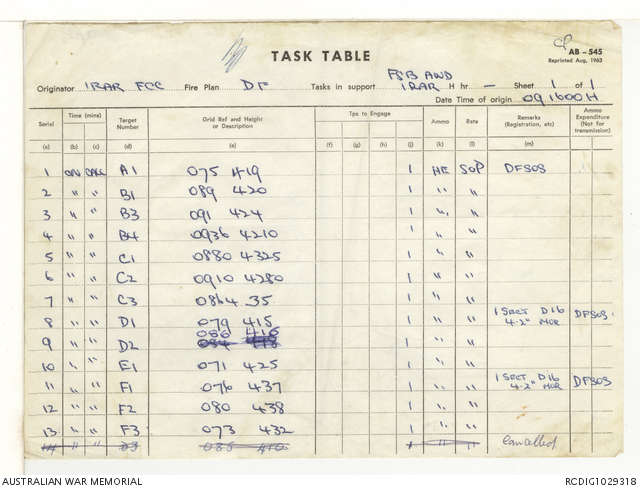 AB - 545
Reprinted Aug, 1963
TASK TABLE
Originator 1RAR FCC Fire Plan DF Tasks in support FSB AND 1RAR H hr - Sheet 1 of 1
Date Time of origin 091600H
Serial Time (mins) Target Number Grid Ref and Height or Description Tps to Engage Ammo Rate Remarks (Registration, etc) Ammo Expenditure (Not for transmission)
(a) (b) (c) (d) (e) (f) (g) (h) (j) (k) (l) (m)
1 ON CALL A1 075 419 1 HE SOP DFSOS
2 " " B1 089 420 1 " "
3 " " B3 091 424 1 " "
4 " " B4 0936 4210 1 " "
5 " " C1 0880 4325 1 " "
6 " " C2 0910 4280 1 " "
7 " " C3 0864 35 1 " "
8 " " D1 079 415 1 " " 1 SECT D 16 4.2" MOR DFSOS
9 " " D2 086 416 1 " "
10 " " E1 071 425 1 " "
11 " " F1 076 437 1 " " 1 SECT D 16 4.2" MOR DFSOS
12 " " F2 080 438 1 " "
13 " " F3 073 432 1 " "
14 " " D3 085 410 1 " " Cancelled
AUSTRALIAN WAR MEMORIAL
RCDIG1029318